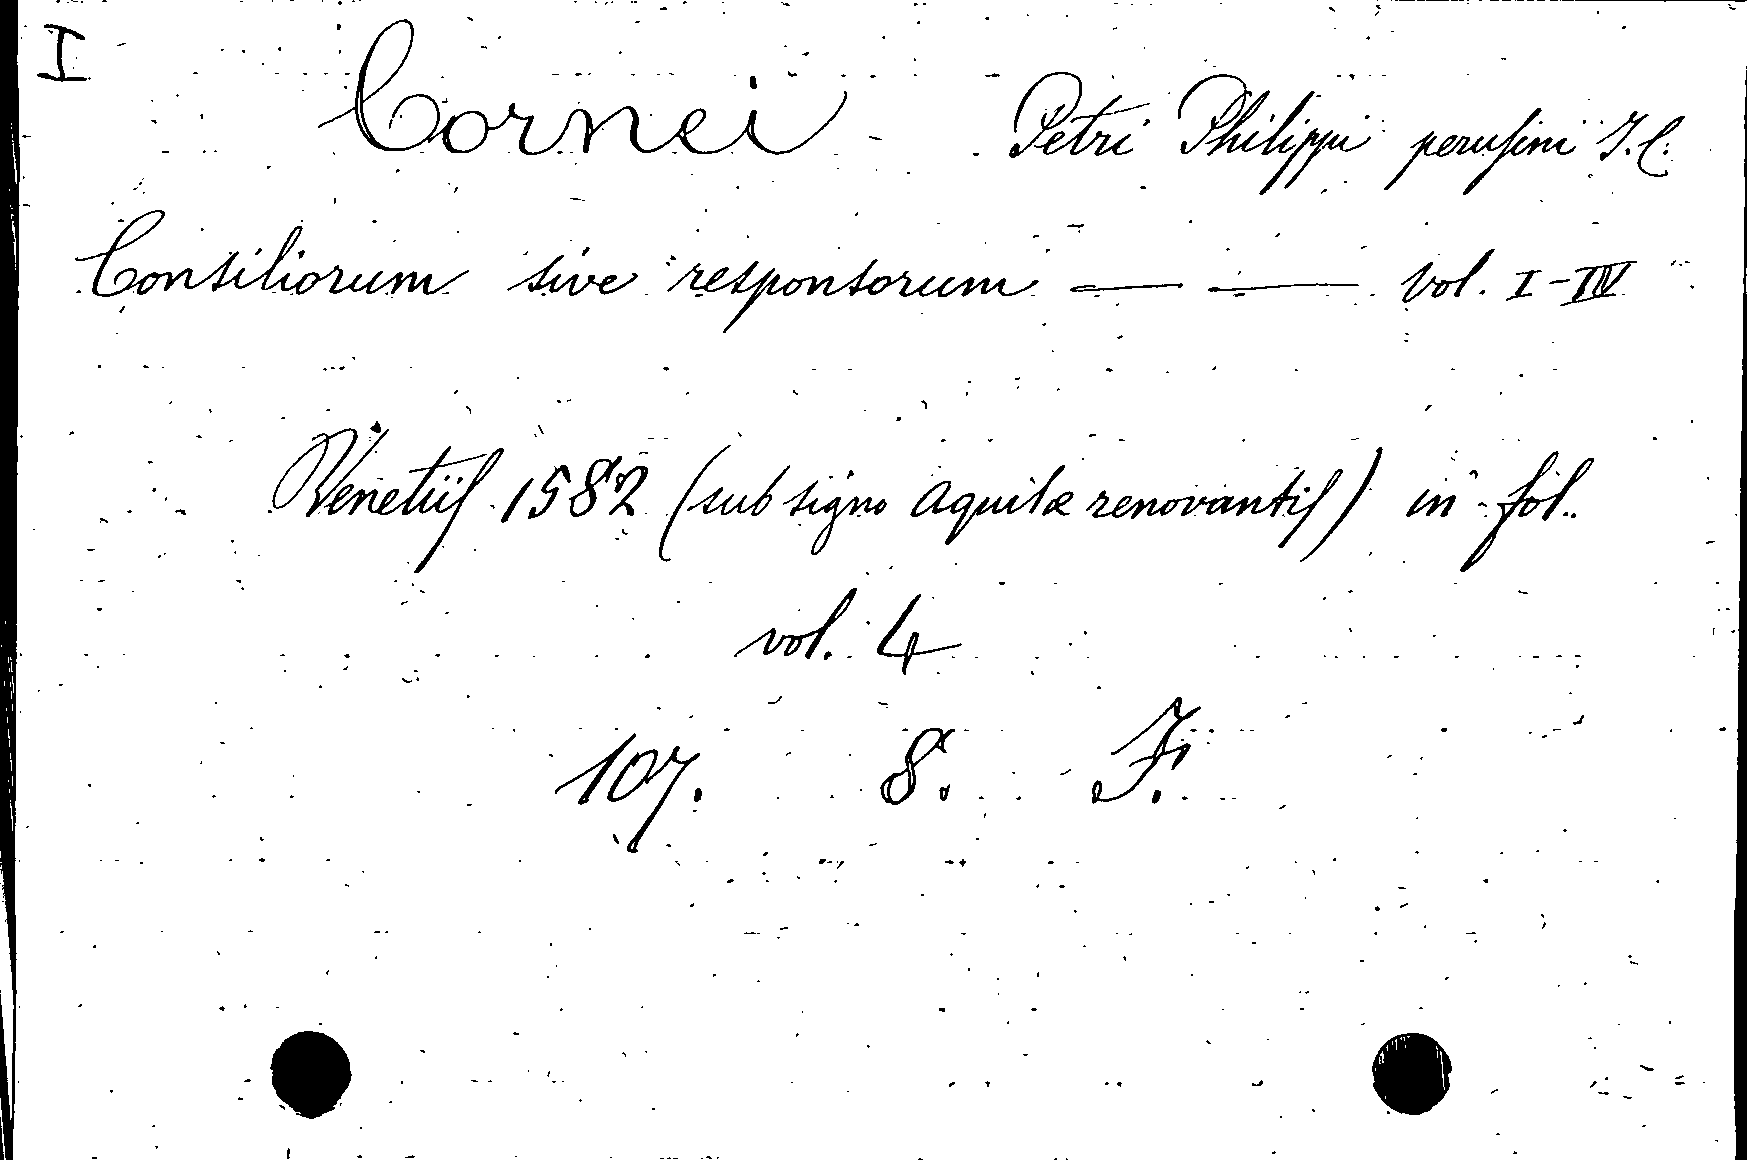 I
Cornei Petri Philippi perusini J.C.
Consiliorum sive responsorum — — vol. I-IV
Venetiis 1582 (sub signo aquilæ renovantis) in fol.
vol. 4
107. 8. F.